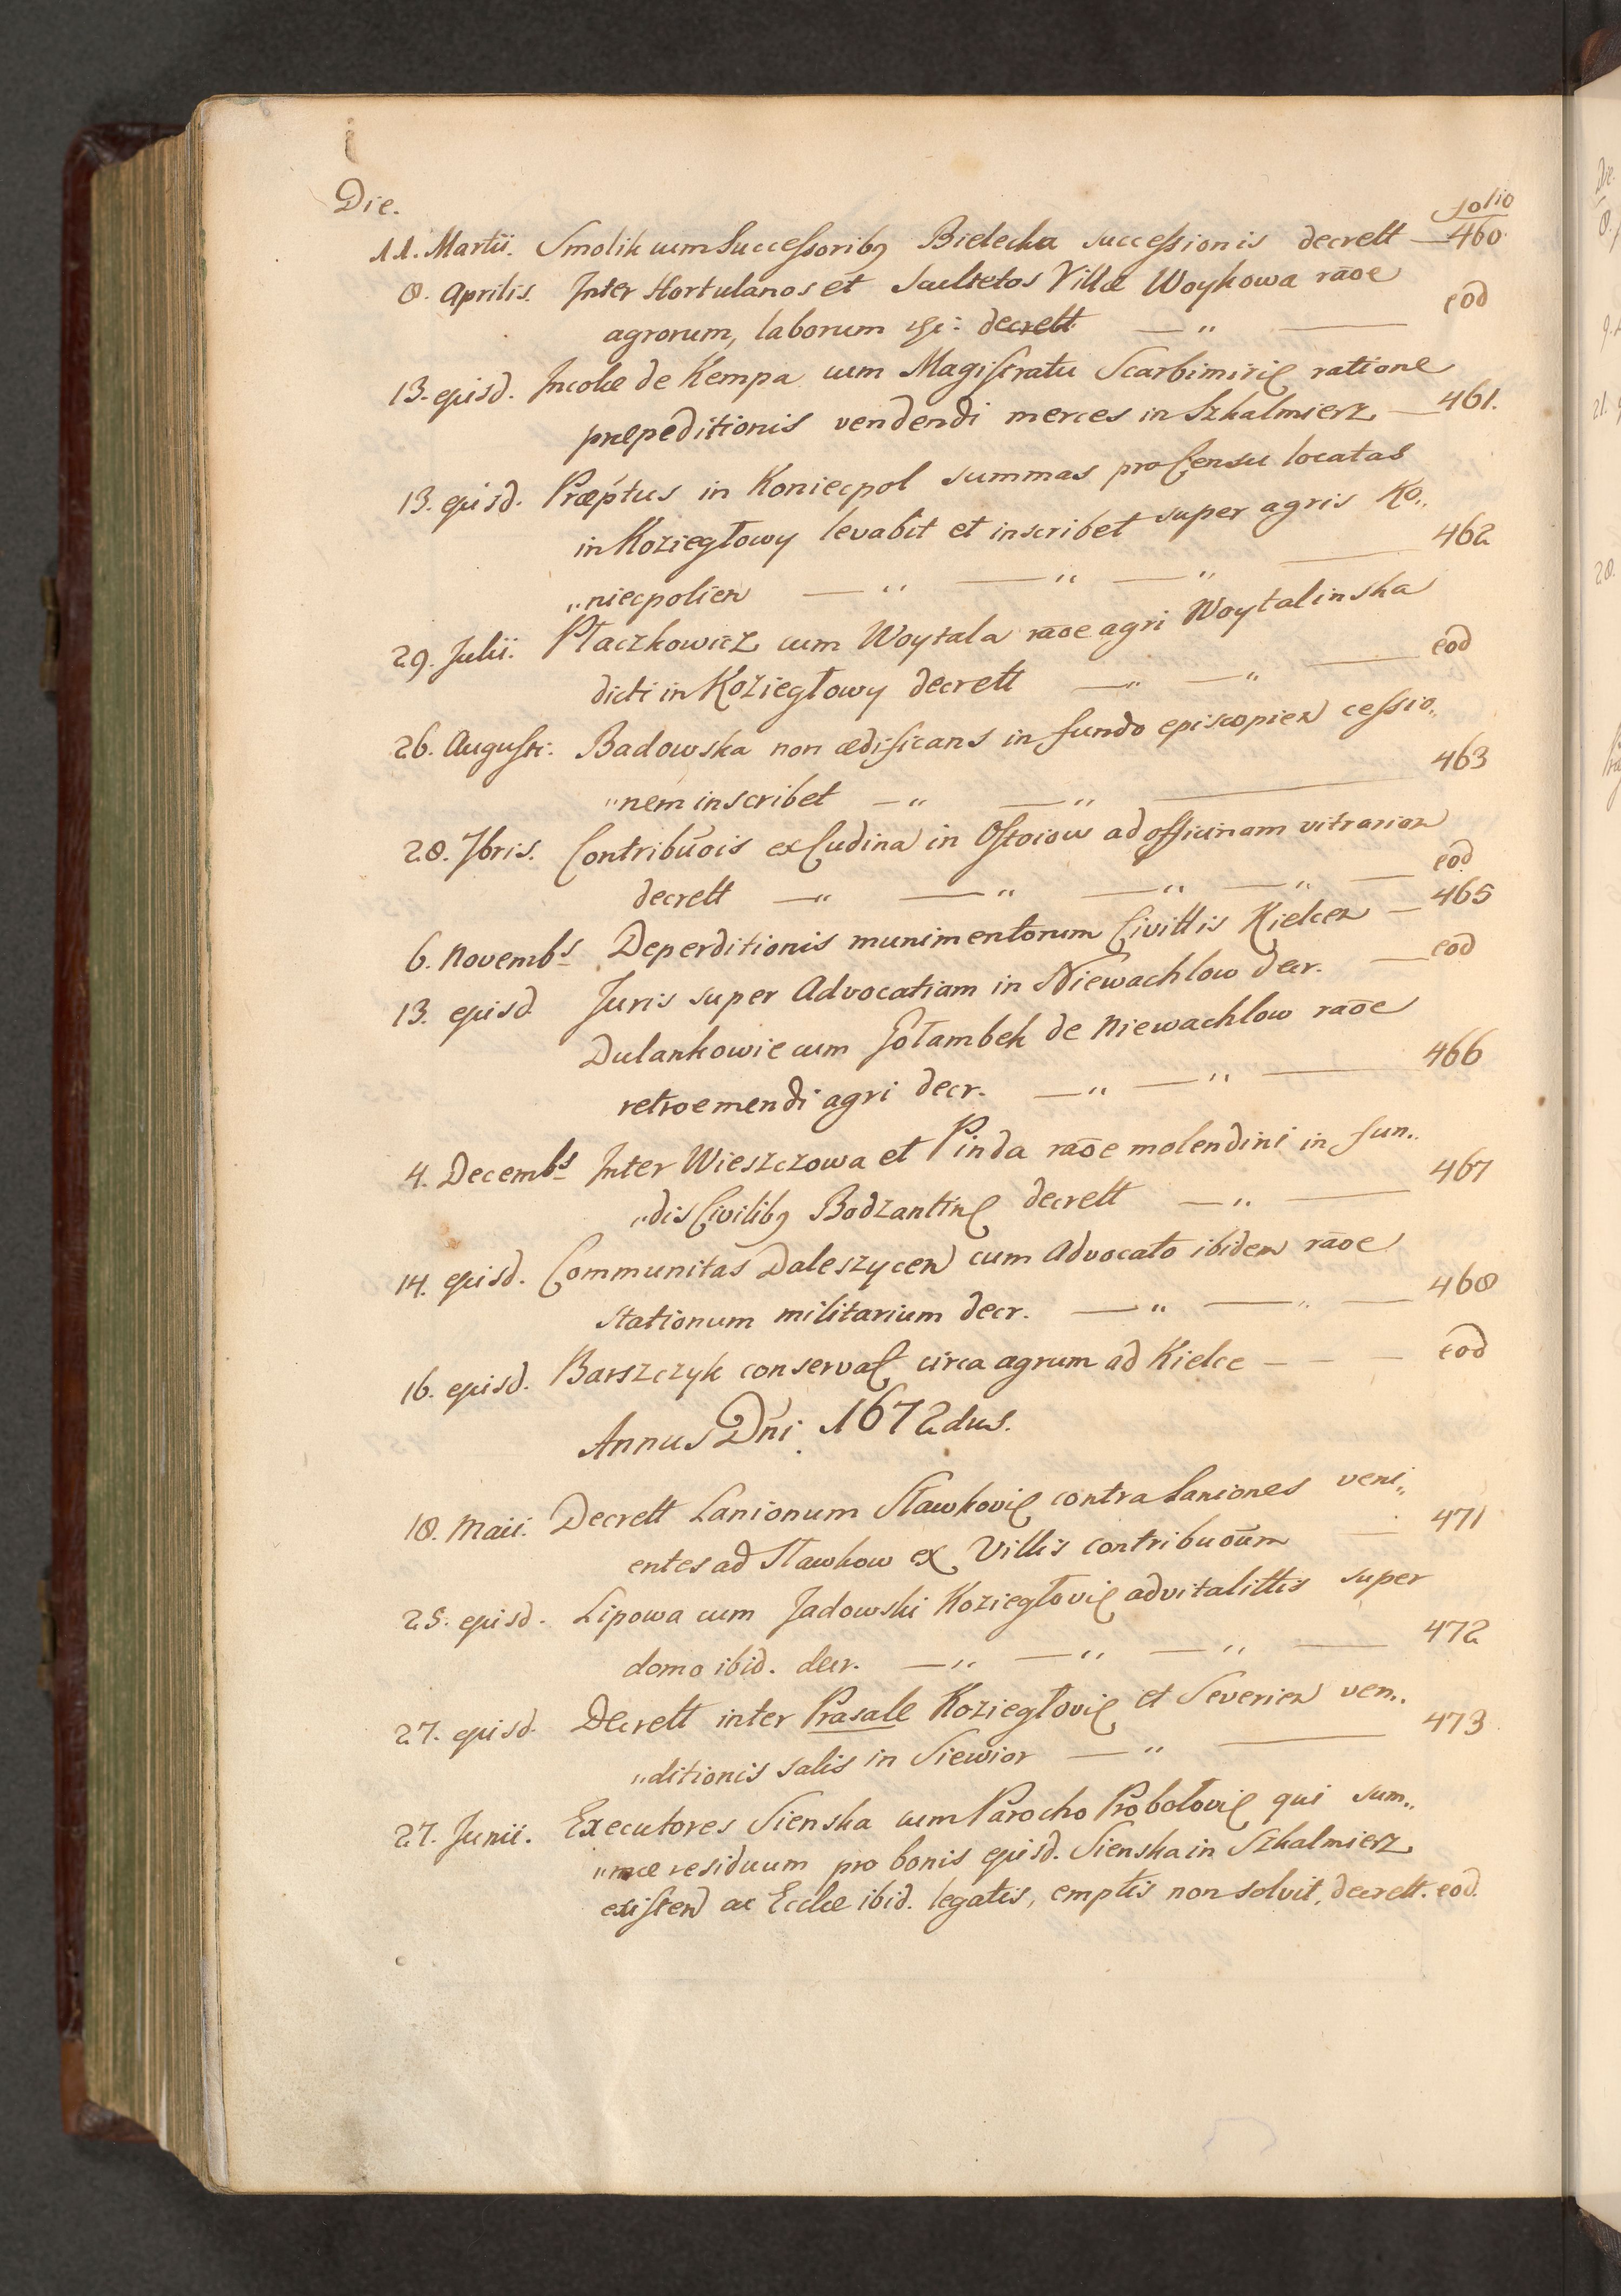 Die.
folio
11. Martii. Smolik cum Successoribꝫ Bielecka successionis decrett — 460.
8. Aprilis. Inter Hortulanos et Scultetos Villæ Woykowa rāoe
agrorum, laborum &c: decrett — " — eod
13. ejusd. Incolæ de Kempa cum Magistratu Scarbimirie ratione
præpeditionis vendendi merces in Szkalmierz — 461.
13. ejusd. Præptus in Koniecpol summas pro Censu locatas
in Koziegłowy levabit et inscribet super agris Ko„
„niecpolien — " — " — " — 462
29. Julii. Płaczkowicz cum Woytala rāoe agri Woytalinska
dicti in Koziegłowy decrett — " — " — eod
26. Augusti. Badowska non ædificans in fundo episcopien cessio„
„nem inscribet — " — " — 463
28. 7bris. Contribuōis ex Cudina in Ostoiow ad officinam vitrarion
decrett — " — " — " — " — eod.
6. Novembs Deperditionis munimentorum Civittis Kielcen — 465
13. ejusd Juris super Advocatiam in Niewachlow decr. — eod
Dulankowie cum Gołambek de Niewachlow rāoe
retroemendi agri decr. — " — " — 466
4. Decembs Inter Wieszczowa et Pinda rāoe molendini in fun„
„dis Civilibꝫ Bodzantine decrett — " — 467
14. ejusd. Communitas Daleszycen cum Advocato ibidem rāoe
stationum militarium decr. — " — " — 468
16. ejusd. Barszczyk conservat circa agrum ad Kielce — — — eod
Annus Dni. 1672dus.
18. Maii. Decrett Lanionum Sławkovie contra Laniones veni„
entes ad Sławkow ex Villis contribuōum — 471
25. ejusd. Lipowa cum Jadowski Koziegłovie advitalittis super
domo ibid. decr. — " — " — " — 472
27. ejusd. Decrett inter Prasale Koziegłovie et Severien ven„
„ditionis salis in Siewior — " — 473
27. Junii. Executores Sienska cum Parocho Probołovie qui sum„
„mæ residuum pro bonis ejusd. Sienska in Szkalmierz
existen ac Ecclæ ibid. legatis, emptis non solvit, decrett. eod.